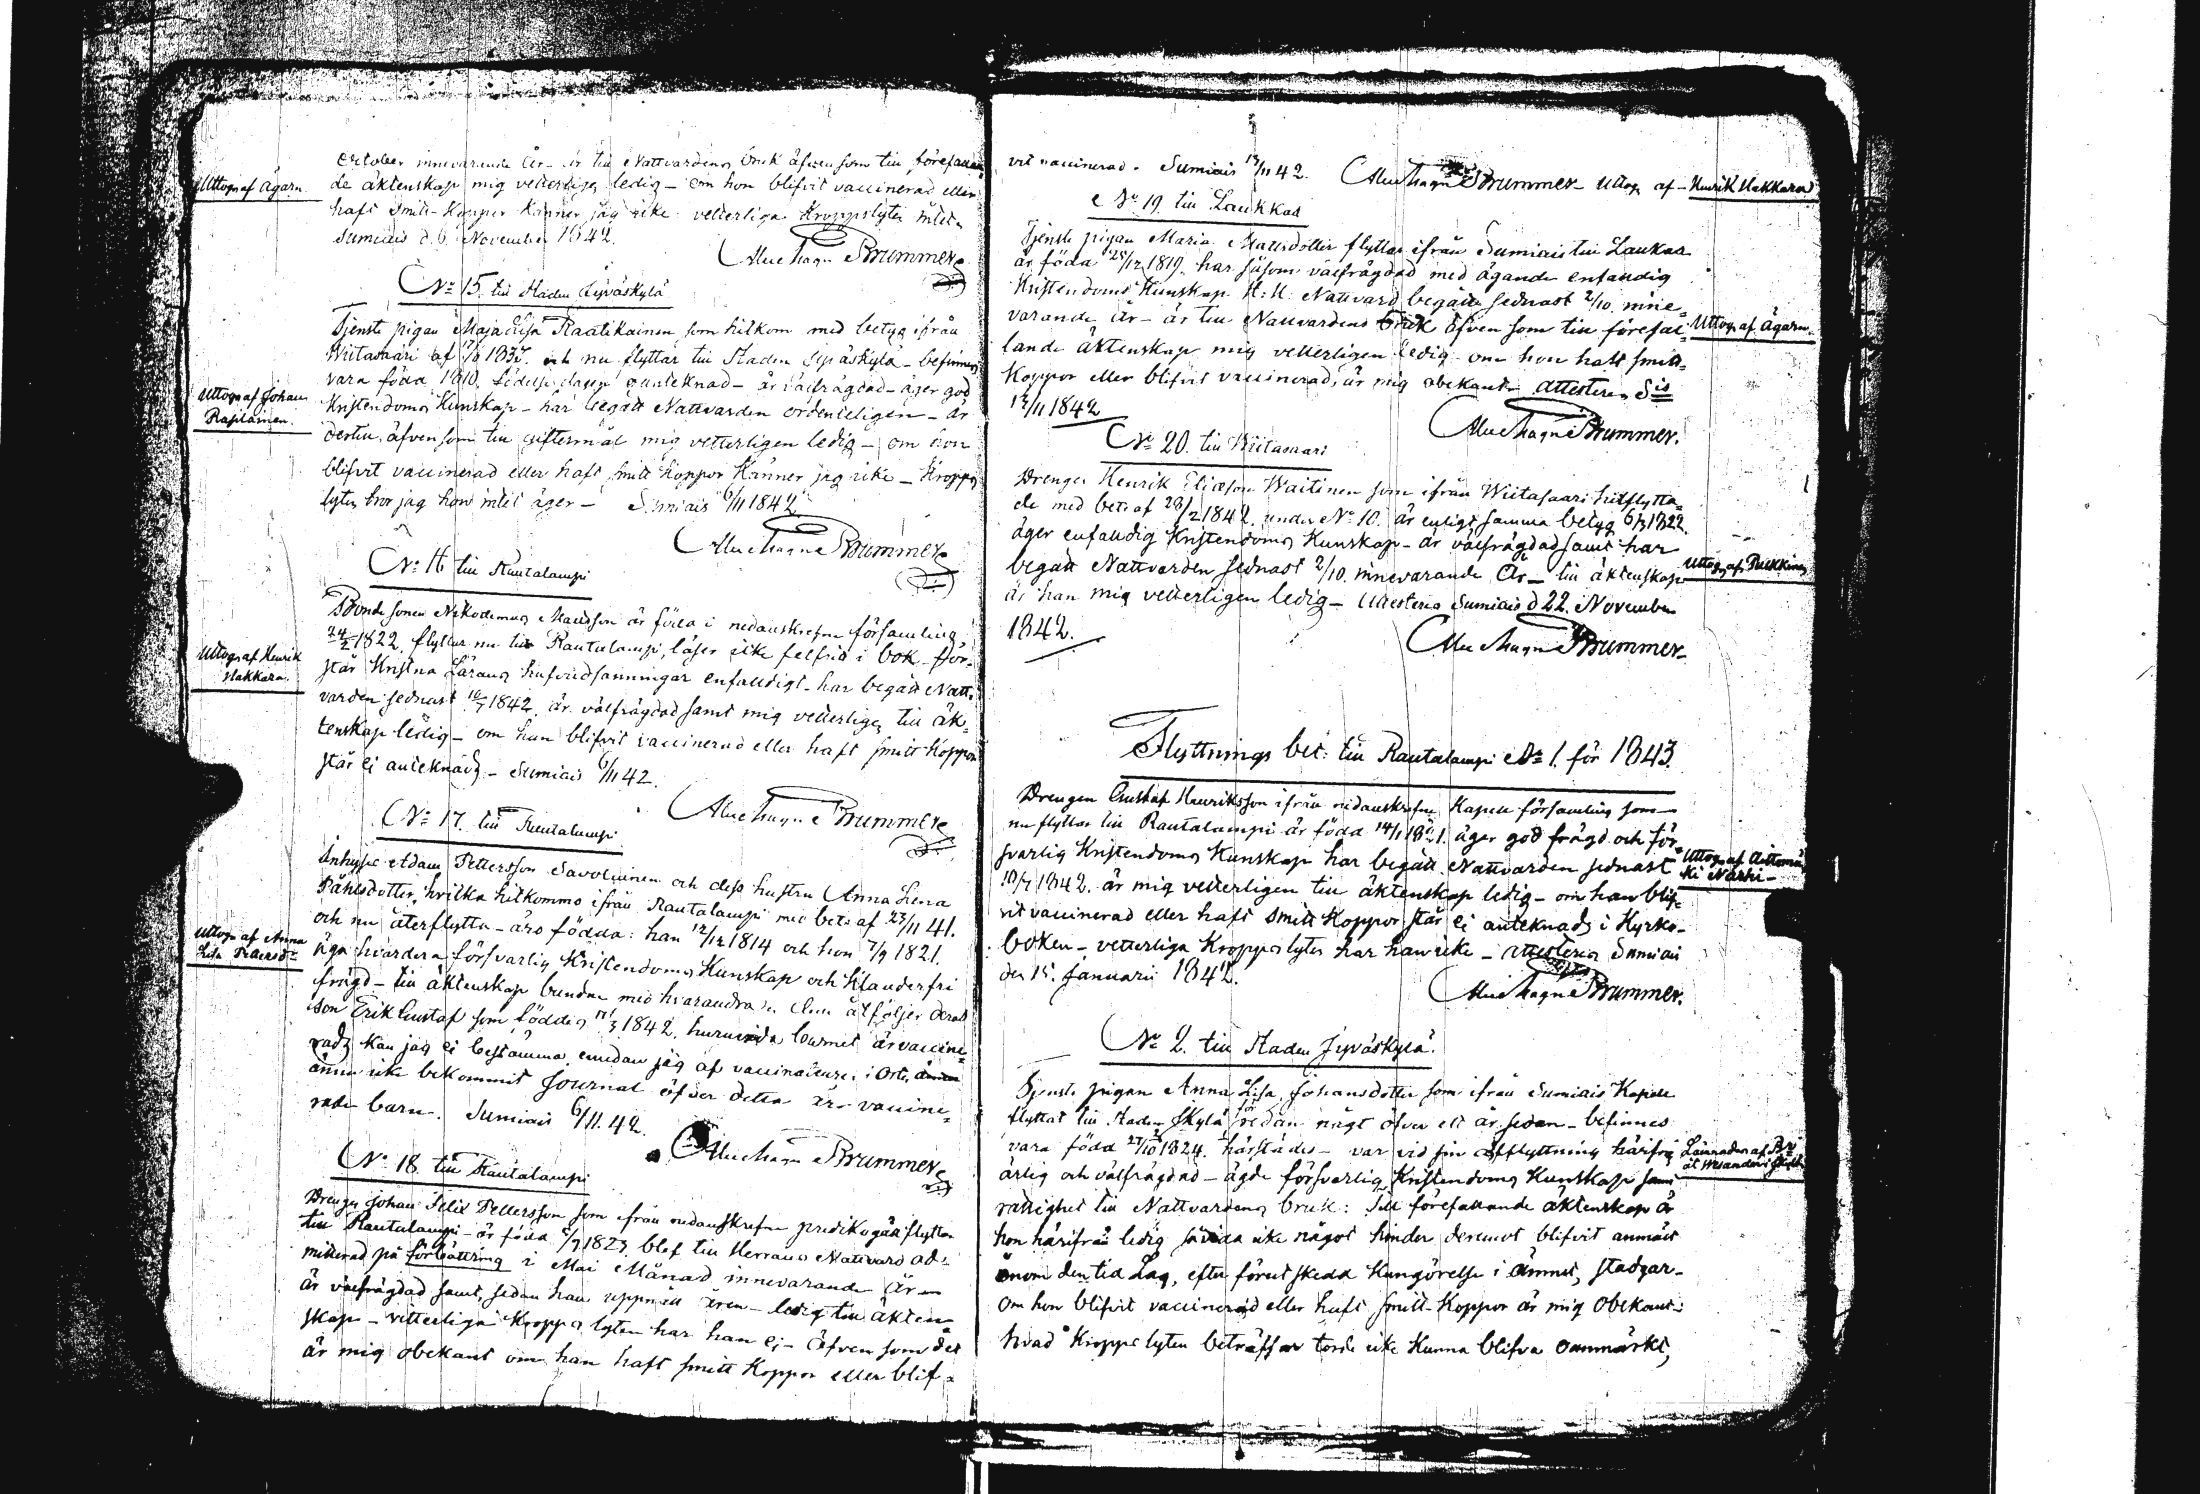 October innevarande År – är till Nattvardens bruk äfvensom till förefallan
de äktenskap mig vetterligen ledig – om hon blifvit vaccinerad eller
Uttog af Ägarn.
haft Smitt-Koppor känner jag icke vetterliga Kroppslyten intet.
Sumiais d. 6 November 1842.
Brummer
No 15. till Staden Jyväskylä
Tjenste pigan Maja Lisa Raatikainen som hitkom med betyg ifrån
Wiitasaari af 1835. och nu flyttar till Staden Jyväskylä – befinnes
vara födda 1810. födelsedagen anteknad – är välfrägdad – äger god
Uttog af Johan
Rasilainen.
Kristendoms Kunskap – har begått Nattvarden ordenteligen – är
dertill, äfvensom till giftermål mig vetterligen ledig – om hon
blifvit vaccinerad eller haft smitt koppor känner jag icke – Kropps
lyten tror jag hon intet äger – Sumiais 6/11 1842
Brummer
No 16 till Rautalampi
Bonde sonen Nikodemus Mattsson är föda i nedanskrefne församling
24/2 1822, flyttar nu till Rautalampi, läser icke felfrit i bok – för-
Uttog af Henrik
Hakkara.
står Kristna Lärans hufvudsanningar enfaldigt – har begått Natt-
varden sednast 10/7 1842. är välfrägdad samt mig vetterligen till äk-
tenskap ledig – om han blifvit vaccinerad eller haft smitt Koppor
står ej anteknadt – Sumiais 6/11 42.
Brummer
No 17. till Rautalampi
Inhyses Adam Pettersson Savolainen och dess hustru Anna Lena
Påhlsdotter, hvilka hitkommo ifrån Rautalampi med bet: af 23/11 41.
och nu återflytta – äro födda: han 12/12 1814 och hon 7/9 1821.
Uttog af Anna
Lisa Pettersd:r
äga hvardera försvarlig Kristendoms Kunskap och Klanderfri
frägd – till äktenskap bundne med hvarandra. Ännu åtföljer deras
son Erik Gustaf som föddes 1842. huruvida barnet är vaccine-
radt kan jag ej bestämma emedan jag af vaccinateuren i Orten
ännu icke bekommit Journal öfver detta års vaccine-
rade barn. Sumiais 6/11. 42.
Brummer
No 18 till Rautalampi
Drengen Johan Felix Pettersson som ifrån nedanskrefne predikogäll flyttar
till Rautalampi – är född 1823. blef till Herrans Nattvard ad-
mitterad på förbättring i Maj Månad innevarande år –
är välfrägdad samt, sedan han uppnått åren – ledig till äkten-
skap – vetterliga Kropps lyten har han ej – äfven som det
är mig obekant om han haft smitt Koppor eller blif-
vit vaccinerad. Sumiais 13/11 42. Brummer – Uttog af – Henrik Hakkara
No 19 till Laukkas
Tjenste pigan Maria Mattsdotter flyttar ifrån Sumiais till Laukas
är föda 25/12 1819. har såsom välfrägdad med ägande enfaldig
Kristendoms Kunskap H: H: Nattvard begått sednast 2/10. inne-
varande År – är till Nattvardens bruk äfven som till förefal-
Uttog af Ägarn.
lande äktenskap mig vetterligen ledig – om hon haft smitt-
Koppor eller blifvit vaccinerad, är mig obekant – attesterar Sis
13/11 1842
Brummer.
No 20. till Wiitasaari
Drengen Henrik Eliasson Waitinen som ifrån Wiitasaari hitflytta-
de med bet: af 28/2 1842. under No 10. är enligt samma betyg 1822.
äger enfaldig Kristendoms Kunskap – är välfrägdad samt har
begått Nattvarden sednast 2/10. innevarande År – till äktenskap
Uttog af Pukkinen
är han mig vetterligen ledig – Attesterar Sumiais d 22. November
1842.
Brummer
Flyttnings bet: till Rautalampi No 1. för 1843.
Drengen Gustaf Henriksson ifrån nedanskrefne Kapell församling som
nu flyttar till Rautalampi är föda 14/1 1821. äger god frägd och för-
svarlig Kristendoms Kunskap har begått Nattvarden sednast
10/7 1842. är mig vetterligen till äktenskap ledig – om han blif-
vit vaccinerad eller haft Smitt Koppor står ej anteknadt i Kyrko-
boken – vetterliga Kropps lyten har han icke – Attesterar Sumiais
den 15. Januarii 1842.
Brummer.
No 2. till Staden Jyväskylä.
Tjenste pigan Anna Lisa Johansdotter som ifrån Sumiais Kapell
flyttat till Staden Jkylä för redan någt öfver ett år sedan – befinnes
vara föda 27/10 1824. härstädes – var vid sin afflyttning härifrån
ärlig och välfrägdad – ägde försvarlig Kristendoms Kunskap samt
rättighet till Nattvardens bruk: Till förefallande äktenskap är
hon härifrån ledig såvida icke något hinder deremot blifvit anmält
inom den tid Lag, efter förut skedd Kungörelse i ämnet, stadgar –
Om hon blifvit vaccinerad eller haft smitt Koppor är mig obekant:
hvad Kropps lyten beträffar torde icke kunna blifva oanmärkt,